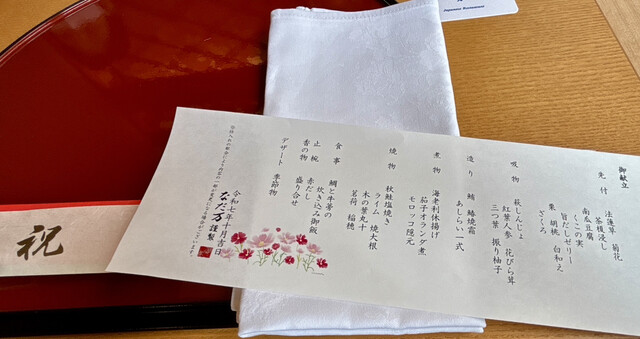 御献立
先付 法蓮草 菊花
茶椀浸し
南瓜豆腐
くこの実
旨だしゼリー
栗 胡桃 白和え
ざくろ
吸物 萩しんじょ
紅葉人参 花びら茸
三つ葉 振り柚子
造り 鮪 鰆焼霜
あしらい一式
煮物 海老利休揚げ
茄子オランダ煮
モロッコ隠元
焼物 秋鮭塩焼き
ライム 焼大根
木の葉丸十
茗荷 稲穂
食事 鯛と牛蒡の
炊き込み御飯
止椀 赤だし
香の物 盛り合せ
デザート 季節物
令和七年十月吉日
なだ万 謹製
祝
Japanese Restaurant